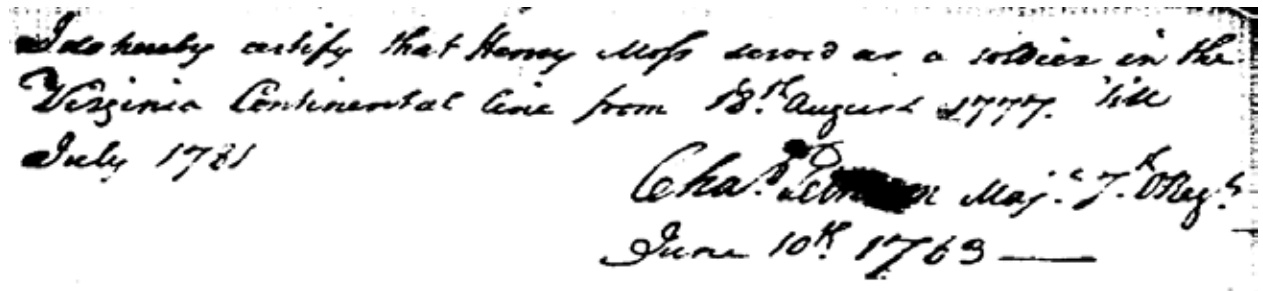 I do hereby certify that Henry Moss served as a soldier in the
Virginia Continental line from 18.th August 1777. 'till
July 1781
Cha.s Maj.r 7.th Reg.t
June 10th 1783